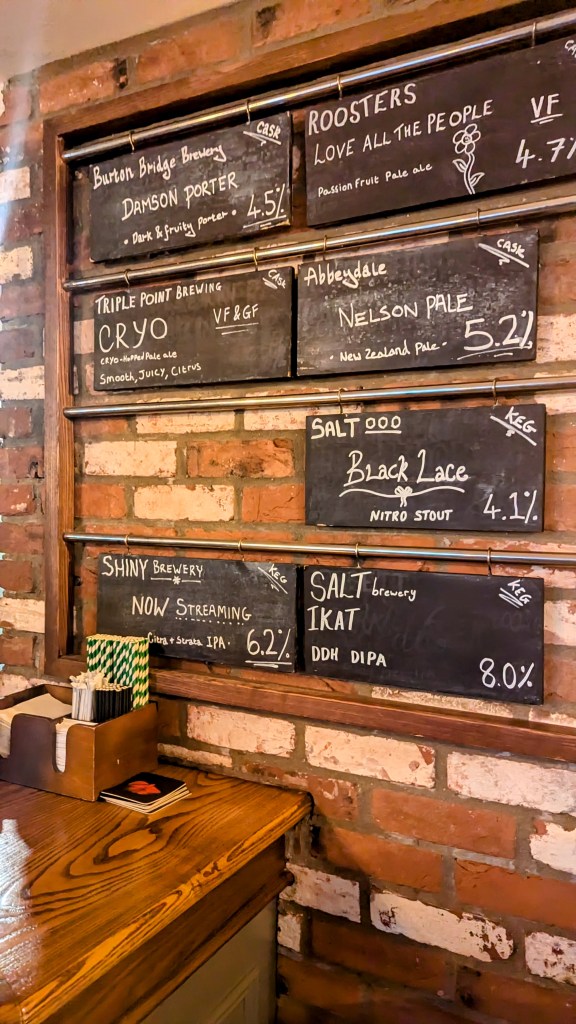 CASK
Burton Bridge Brewery
DAMSON PORTER
• Dark & fruity porter •
4.5%
ROOSTERS
LOVE ALL THE PEOPLE
Passion Fruit Pale ale
VF
4.7%
CASK
TRIPLE POINT BREWING
CRYO
VF & GF
CRYO-Hopped Pale ale
Smooth, Juicy, Citrus
CASK
Abbeydale
NELSON PALE
• New Zealand Pale •
5.2%
KEG
SALT
Black Lace
NITRO STOUT
4.1%
KEG
SHINY BREWERY
NOW STREAMING
Citra + Strata IPA •
6.2%
KEG
SALT brewery
IKAT
DDH DIPA
8.0%